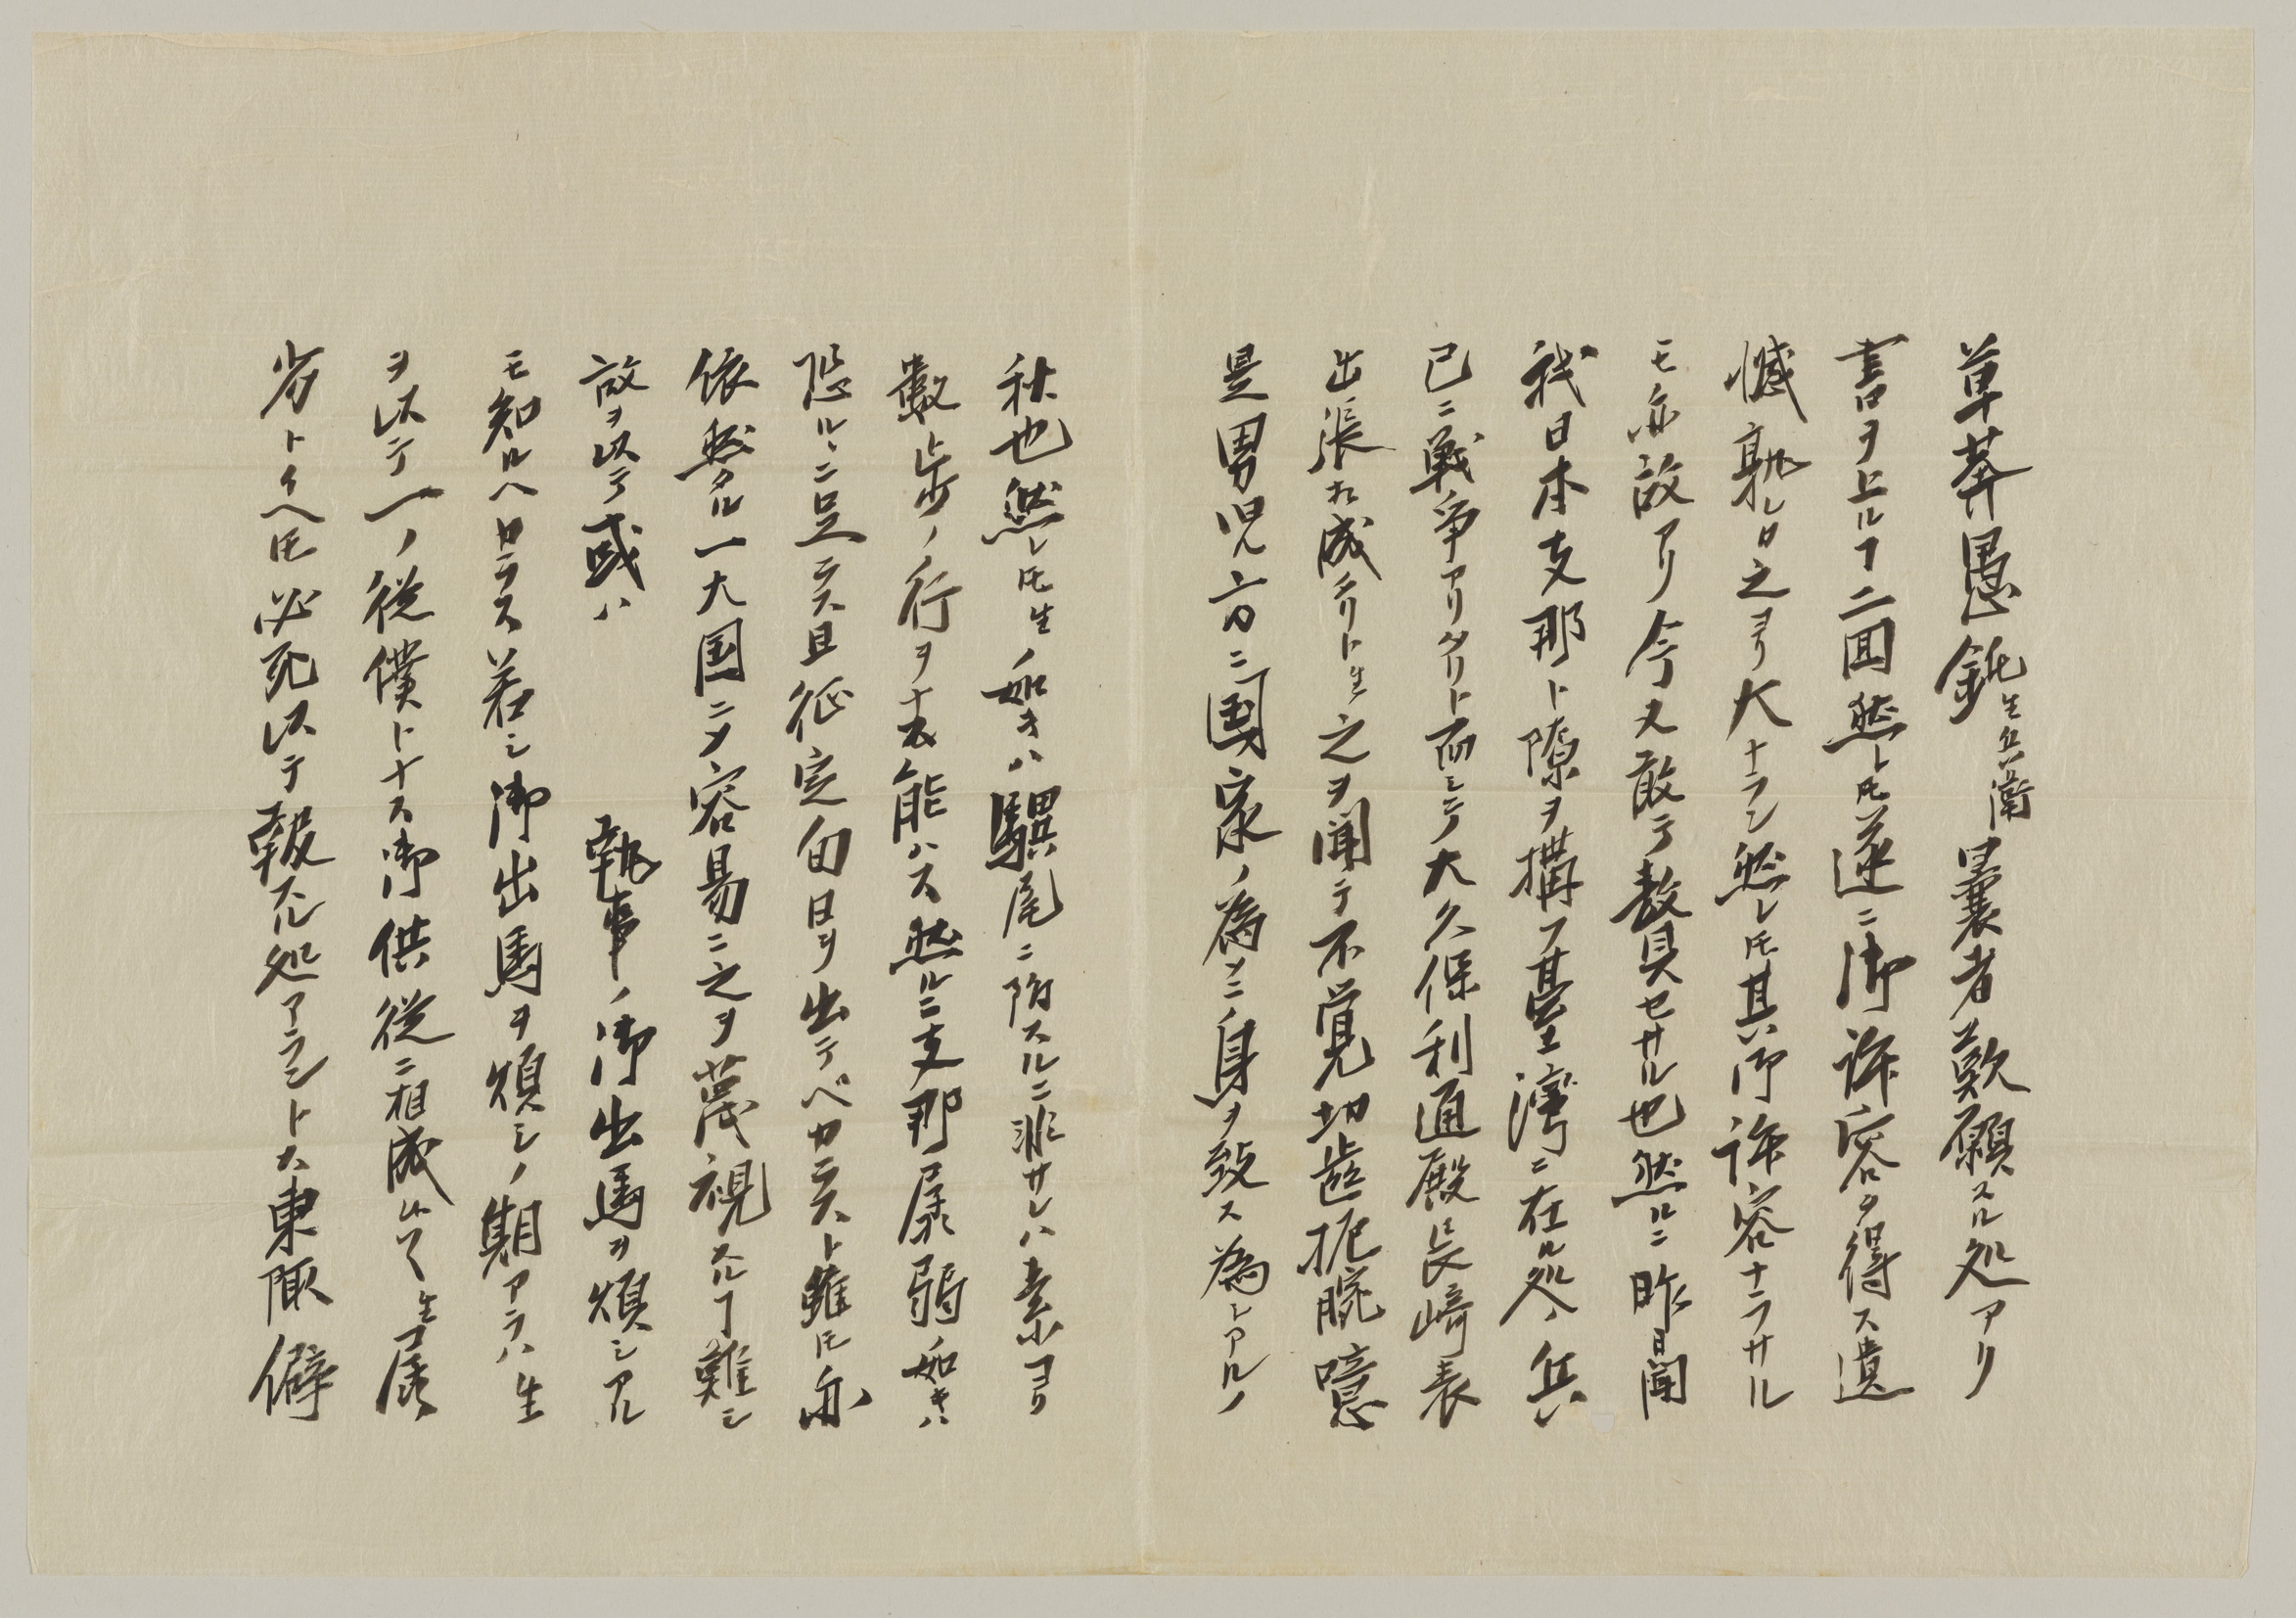 草莽愚鈍生兵衛曩者歎願スル処アリ
書ヲ上ルヿ二回然トモ遂ニ御許容ヲ得ス遺
憾孰レカ之ヨリ大ナラン然レトモ其御許容ナラサル
モ亦故アリ今又敢テ贅具セサル也然ルニ昨日聞
我日本支那ト隙ヲ構フ其臺湾ニ在ル処ノ兵
已ニ戦争アリタリト而シテ大久保利通殿長崎表
出張相成タリト生之ヲ聞テ不覚切歯扼腕噫
是男児方ニ国家ノ為メニ身ヲ致ス為トアルノ
秋也然レトモ生ノ如キハ驥尾ニ附スルニ非サレハ素ヨリ
数歩ノ行ヲナス能ハス然ルニ支那孱弱如キハ
恐ルヽニ足ラス且征定旬日ヲ出テベカラスト雖トモ亦
依然タル一大国ニメ容易ニ之ヲ蔑視スルヿ難シ
故ヲ以テ或ハ 執事ノ御出馬ヲ煩シアル
モ知ルヘカラス若シ御出馬ヲ煩シノ期アラハ生
ヲ以テ一ノ従僕トナス御供従ニ相成
劣トイヘトモ必死以テ報スル処アラントス東陬僻